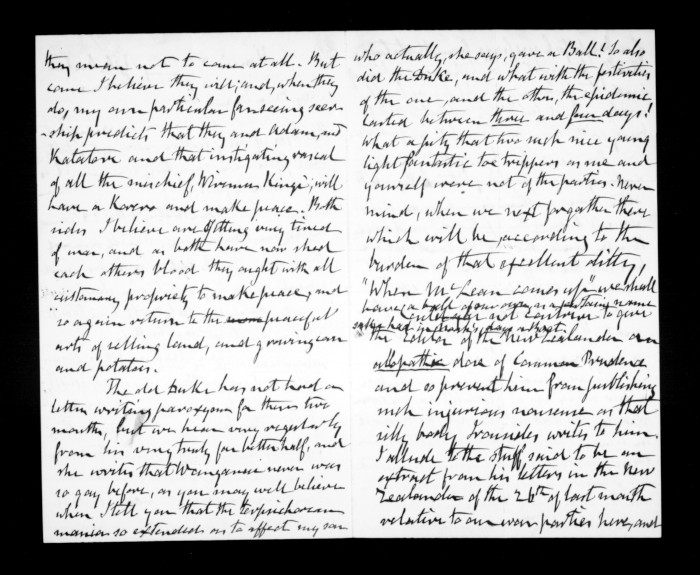 they mean not to come at all. But
come I believe they will; and, when they
do, my own particular farseeing seer-
-ship predicts that they and Adam, and
Katatore and that instigating rascal
of all the mischief, Wiremu Kingi, will
have a Korero and make peace. Both
sides I believe are getting very tired
of war, and as both have now shed
each others blood they ought with all
"customary propriety to make peace, and
so again return to the peaceful
arts of selling land, and growing corn
and potatoes.
The old Duke has not had a
letter writing paroxysm for these two
months, but we hear very regularly
from his very truly far better half, and
she writes that Wanganui never was
so gay before, as you may well believe
when I tell you that the terpsichorean
mania so extended as to affect my son
who actually, she says, gave a Ball! So also
did the Duke, and what with the festivities
of the one, and the other, the epidemic
lasted between three and four days!
What a pity that two such nice young
light fantastic toe trippers as me and
yourself were not of the parties. Never
mind, when we next forgather there
which will be, according to the
burden of that excellent ditty,
"When McLean comes up" we shall
have a ball of our own,
not contrive to give
the Editor of the New Zealander an
allopathic dose of Common Prudence
and so prevent him from publishing
such injurious nonsense as that
silly body Ironsides writes to him.
I allude to the stuff said to be an
extract from his letters in the New
Zealander of the 26th of last month
relative to our war parties here, and